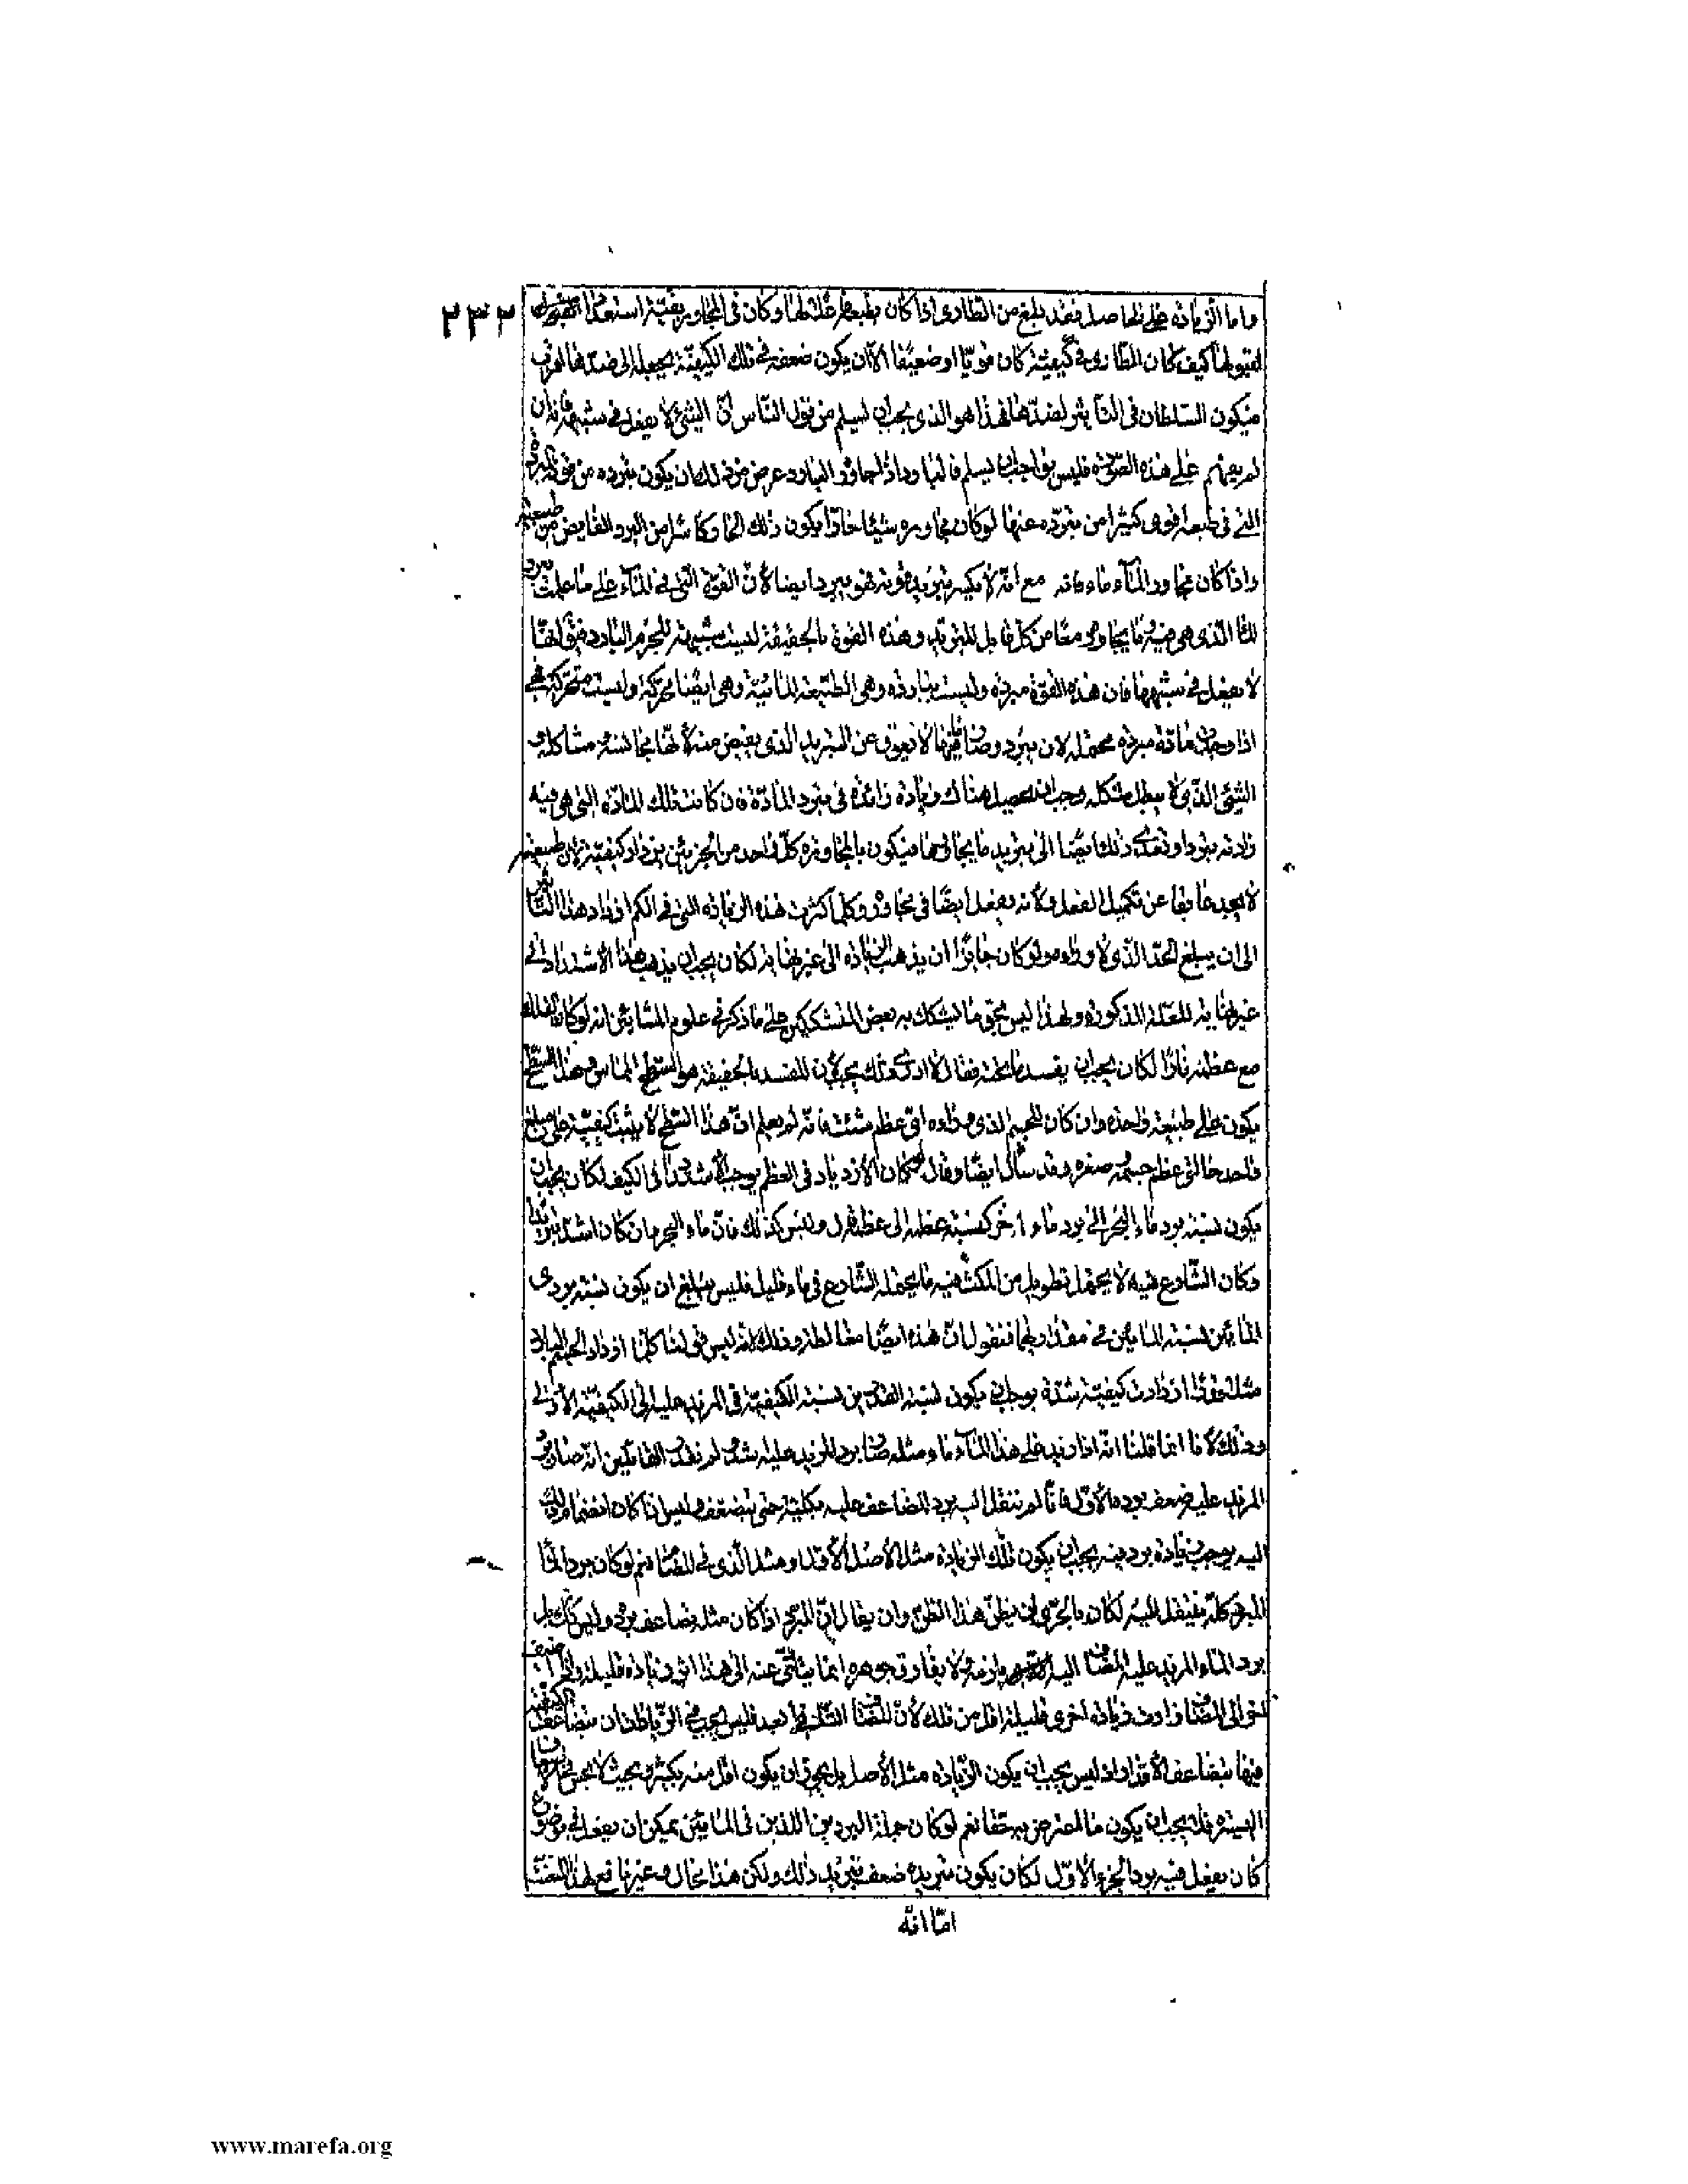 ٢٣٣
واما الزيادة على الحاصل فقد يبلغ من الطارى اذا كان وكان فى المجاور بقية استعداد
لقبولها كيف كان الطارى فى كيفيته كان قويا او ضعيفا الا ان يكون ضعفه فى تلك الكيفية يجعله الى ضدها اقرب
فيكون السلطان فى التاثير لضدها فهذا هو الذى يجب ان يسلم من قول الناس ان الشئ لا يفعل فى شبيهه فانه ان
لم يفهم على هذه الصورة فليس بواجب ان يسلم فالبارد اذا جاور البارد عرض من ذلك ان يكون تبرده من قوته المبردة
التى فى طبعه اقوى كثيرا من تبرده عنها لو كان مجاوره شيئا حارا يكون ذلك الحار كاسرا من البرد الفايض من طبيعته
واذا كان مجاور الماء ماء فانه مع انه لا يكسر تبريد قوته فهو يبرد ايضا لان القوة التى فى الماء على ما علمت تبرد
الماء الذى هى فيه وما يجاوره معا من كل قابل للتبريد وهذه القوة بالحقيقة ليست شبيهة للجرم البارد فيقال انها
لا يفعل فى شبيهها فان هذه القوة مبردة وليست بباردة وهى الطبيعة المائية وهى ايضا محركة وليست متحركة فهى
اذا وجدت مادة مبردة محتملة لان يبرد وصادفتها لا تعوق عن التبريد الذى يفيض منه لانها مجانسة مشاكلة و
الشئ الذى لا يبطل مشاكله وجب ان يحصل هناك زيادة زائدة فى تبرد المادة فان كانت تلك المادة التى هى فيه
زادته تبردا وتعدى ذلك ايضا الى تبريد ما يجاورها فيكون بالمجاورة كل واحد من الجزئين يزداد كيفيته لان طبيعته
لا يجد عايقا عن تكميل الفعل ولانه يفعل ايضا فى مجاوره وكلما كثرت هذه الزيادة التى فى الكم ازداد هذا التاثير
الى ان يبلغ الحد الذى لا وراءه ولو كان جايزا ان يذهب الزيادة الى غير نهاية لكان يجب ان يذهب هذا الاشتداد الى
غير نهاية للعلة المذكورة ولهذا ليس بحق ما يشكك به بعض المتشككين على ما ذكر فى علوم المشائين انه لو كان الفلك
مع عظمه نارا لكان يجب ان يفسد ما تحته فقال لا ادرى ذلك يجب لان المفسد بالحقيقة هو السطح المماس وهذا السطح
يكون على طبيعة واحدة وان كان للجسم الذى وراءه اى عظم شئت فانه لم يعلم ان هذا السطح لا يثبت كيفيته على مبلغ
واحد حالتى عظم جسمه وصغره وقد سأل ايضا وقال لو كان الازدياد فى العظم يوجب الاشتداد فى الكيف لكان يجب ان
يكون نسبة برد ماء البحر الى برد ماء اخر كنسبة عظمه الى عظمه وليس كذلك فان ماء البحر وان كان اشد تبريدا
وكان الشارع فيه لا يحتمل تطويل من المكث فيه ما يحتمله الشارع فى ماء قليل فليس يبلغ ان يكون نسبة بردى
المائين نسبة المائين فى مقداريهما فنقول ان هذه ايضا مغالطة وذلك لانه ليس قولنا كلما ازداد الجسم البارد
مثلا قدرا ازدادت كيفيته شدة يوجب ان يكون نسبة القدرين نسبة الكيفية فى المزيد عليه الى الكيفية الاولى
وذلك لانا انما قلنا انه اذا زيد على هذا الماء ماء مثله صار برد المزيد عليه اشد ولم نقل انه صار برد
المزيد عليه ضعف برده الاول فانا لم ننقل اليه برد المضاعف عليه بكليته حتى يتضعف وليس اذا كان انضمام ذلك
اليه يوجب زيادة برد فيه يجب ان يكون تلك الزيادة مثل الاصل الاول ومثل الذى فى المضاف نعم لو كان برد الماء
المبرد كله ينتقل اليه لكان بالحرى ان يظن هذا الظن وان يقال ان المبرد اذا كان مثله يضاعف برده وليس كك بل
برد الماء المزيد عليه المضاف اليه يلزمه ولا يفارق جوهره انما يتأدى عنه الى هذا اثر وزيادة قليلة
اخر الى المضاف زادت زيادة اخرى قليلة اقل من تلك لان المضاف ابعد فليس يجب فى الزيادات ان يتضاعف الكيفية
فيها بتضاعف الاقدار اذ ليس يجب ان يكون الزيادة مثل الاصل بل يجوز ان يكون اقل منه بكثير بحيث لا يحس
اليسيرة فلا يجب ان يكون ما اعترض به حقا نعم لو كان جملة البردين اللذين فى المائين يمكن ان يفعل فى موضوع
كان يفعل فيه برد الجزء الاول لكان يكون تبريده ضعف تبريد ذلك ولكن هذا محال وغير نافع لهذا
اما انه
www.marefa.org